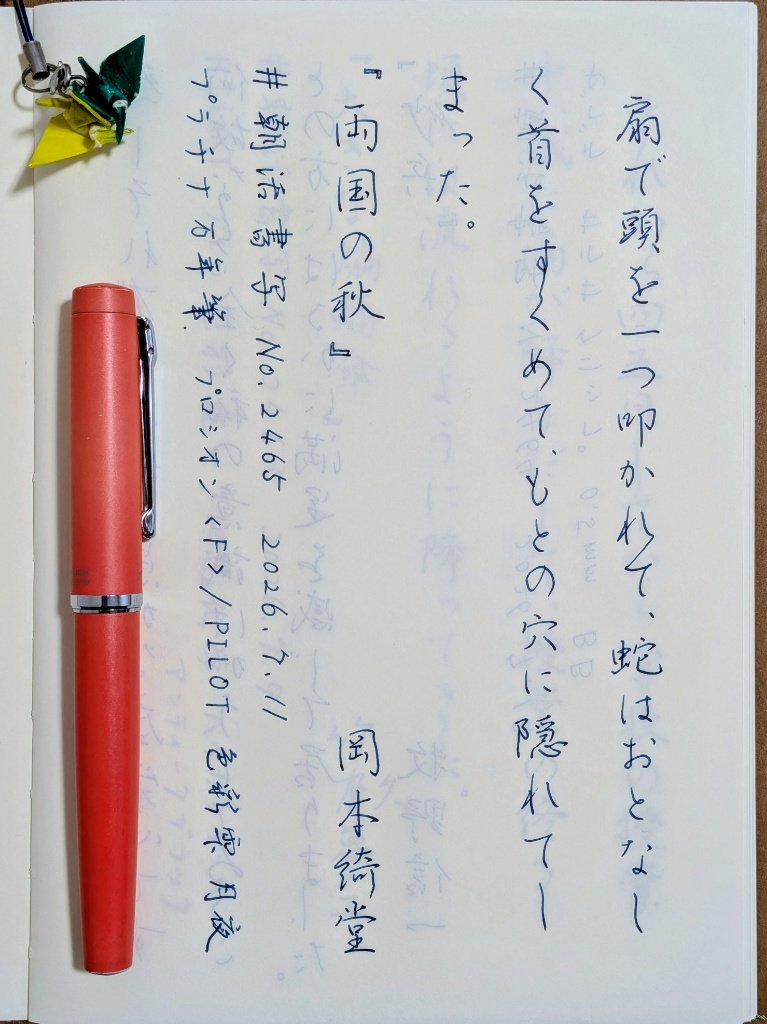 扇で頭を一つ叩かれて、蛇はおとなし
く首をすくめて、もとの穴に隠れてし
まった。
『両国の秋』 岡本綺堂
#朝活書写 No.2465 2026.7.11
プラチナ万年筆 プロシオン<F>/PILOT 色彩雫月夜